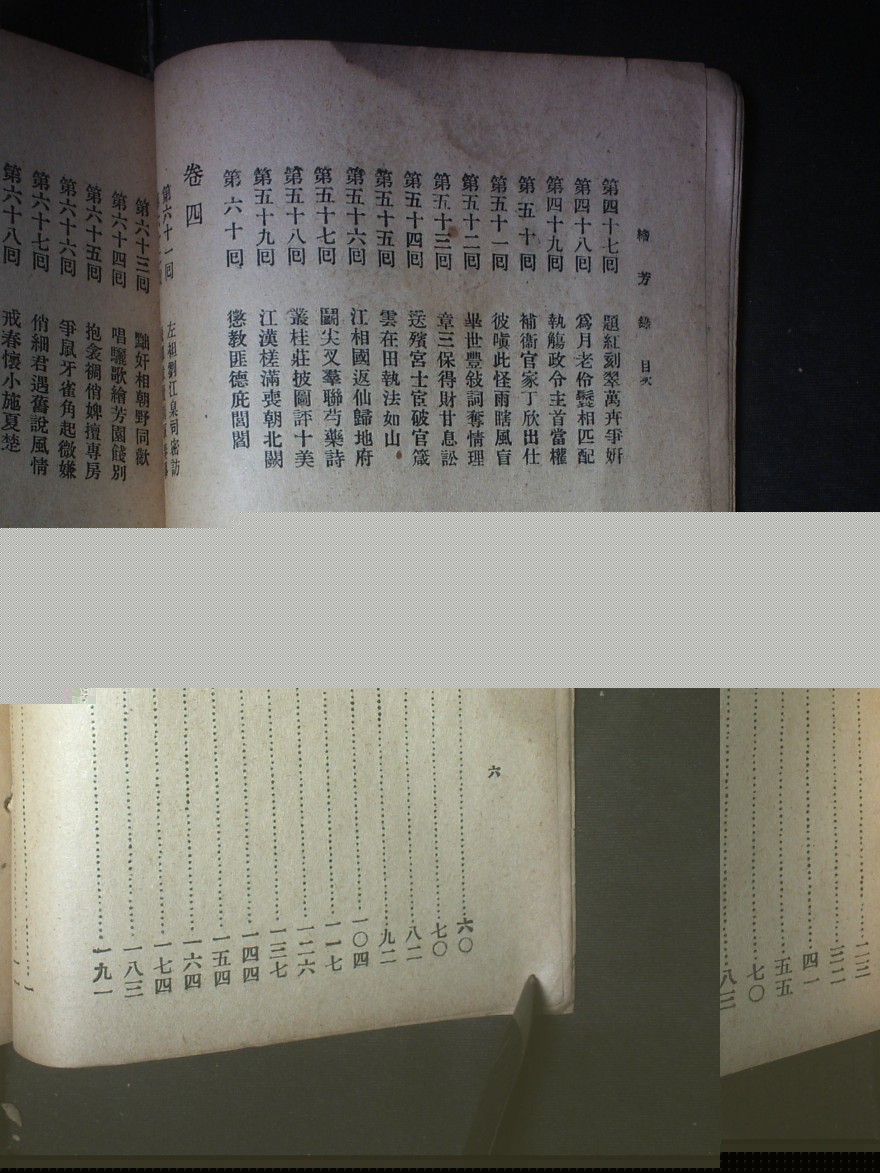 繪芳錄 目次
第四十七回 題紅刻翠萬卉爭姸
第四十八回 爲月老伶鬟相匹配
第四十九回 執觴政令主首當權
第五十回 補衞官家丁欣出仕
第五十一回 彼嗔此怪雨瞎風盲
第五十二回 畢世豐敍詞奪情理
第五十三回 章三保得財甘息訟
第五十四回 送殯宮士宦破官箴
第五十五回 雲在田執法如山
第五十六回 江相國返仙歸地府
第五十七回 鬭尖叉羣聯芍藥詩
第五十八回 叢桂莊披圖評十美
第五十九回 江漢槎滿喪朝北闕
第六十回 懲教匪德庇閭閻
卷四
第六十一回 左袒劉江臬司密訪
第六十三回 黜奸相朝野同歡
第六十四回 唱驪歌繪芳園餞別
第六十五回 抱衾裯俏婢擅專房
第六十六回 爭鼠牙雀角起微嫌
第六十七回 俏細君遇舊說風情
第六十八回 戒春懷小施夏楚
六
六〇
七〇
八二
九二
一〇四
一一七
一二六
一三七
一四四
一五四
一六四
一七四
一八三
一九一
一
二三
三二
四一
五五
七〇
八三